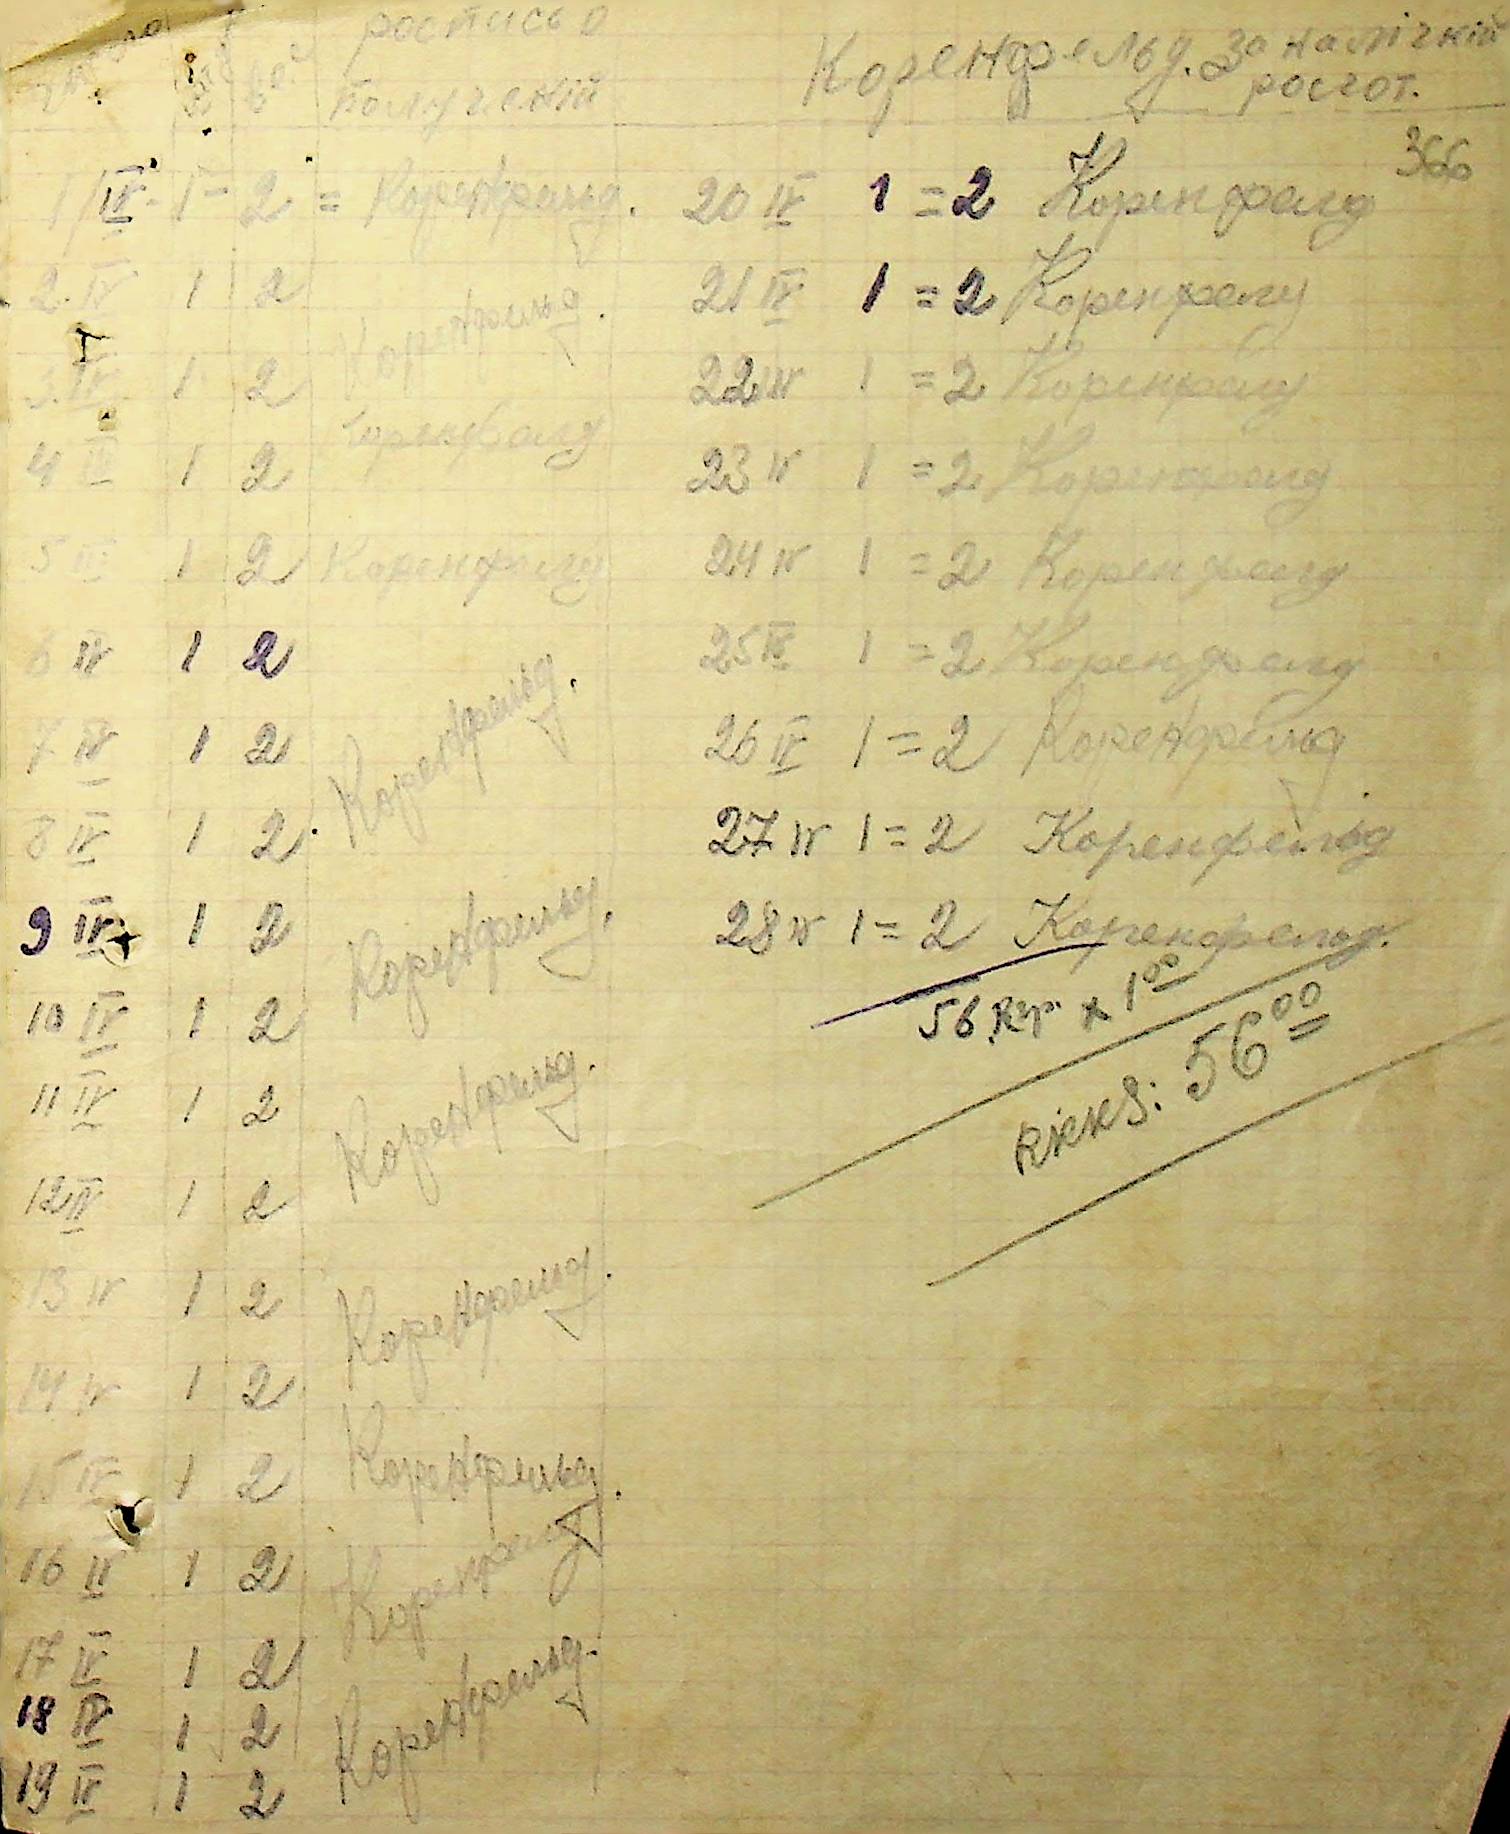 роспись о
получении
Коренфельд. За наличний росчот.
366
1/IV - 1 - 2 = Коренфельд.
2. IV 1 2 Коренфельд.
3. IV 1 2
4 IV 1 2 Коренфелд
5 IV 1 2 Коренфелд
6 IV 1 2
7 IV 1 2 Коренфельд.
8 IV 1 2
9 IV 1 2 Коренфельд.
10 IV 1 2
11 IV 1 2 Коренфельд.
12 IV 1 2
13 IV 1 2 Коренфельд.
14 IV 1 2
15 IV 1 2 Коренфельд.
16 IV 1 2 Коренфелд
17 IV 1 2
18 IV 1 2 Коренфельд.
19 IV 1 2
20 IV 1 = 2 Коренфелд
21 IV 1 = 2 Коренфелд
22 IV 1 = 2 Коренфелд
23 IV 1 = 2 Коренфелд
24 IV 1 = 2 Коренфелд
25 IV 1 = 2 Коренфелд
26 IV 1 = 2 Коренфельд
27 IV 1 = 2 Коренфельд
28 IV 1 = 2 Коренфельд.
56 x 1 00
56 00